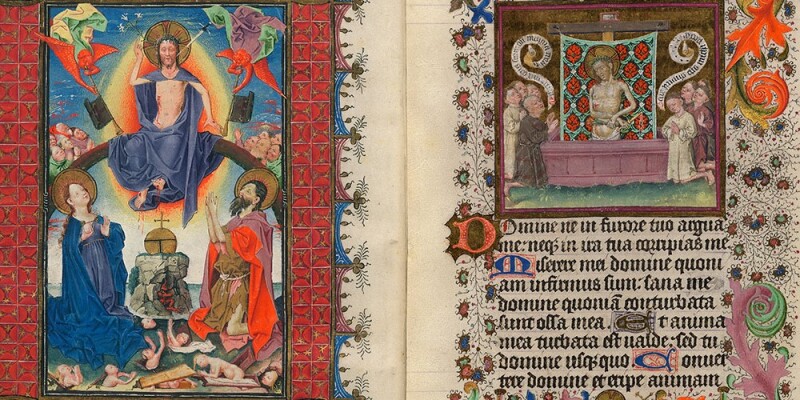 Domine ne in furore tuo argua
me: neqꝫ in ira tua corripias me
Miserere mei domine quoni
am infirmus sum: sana me
domine quoniā conturbata
sunt ossa mea. Et anima
mea turbata est valde: sed tu
domine usqꝫ quo Conuer
tere domine et eripe animam